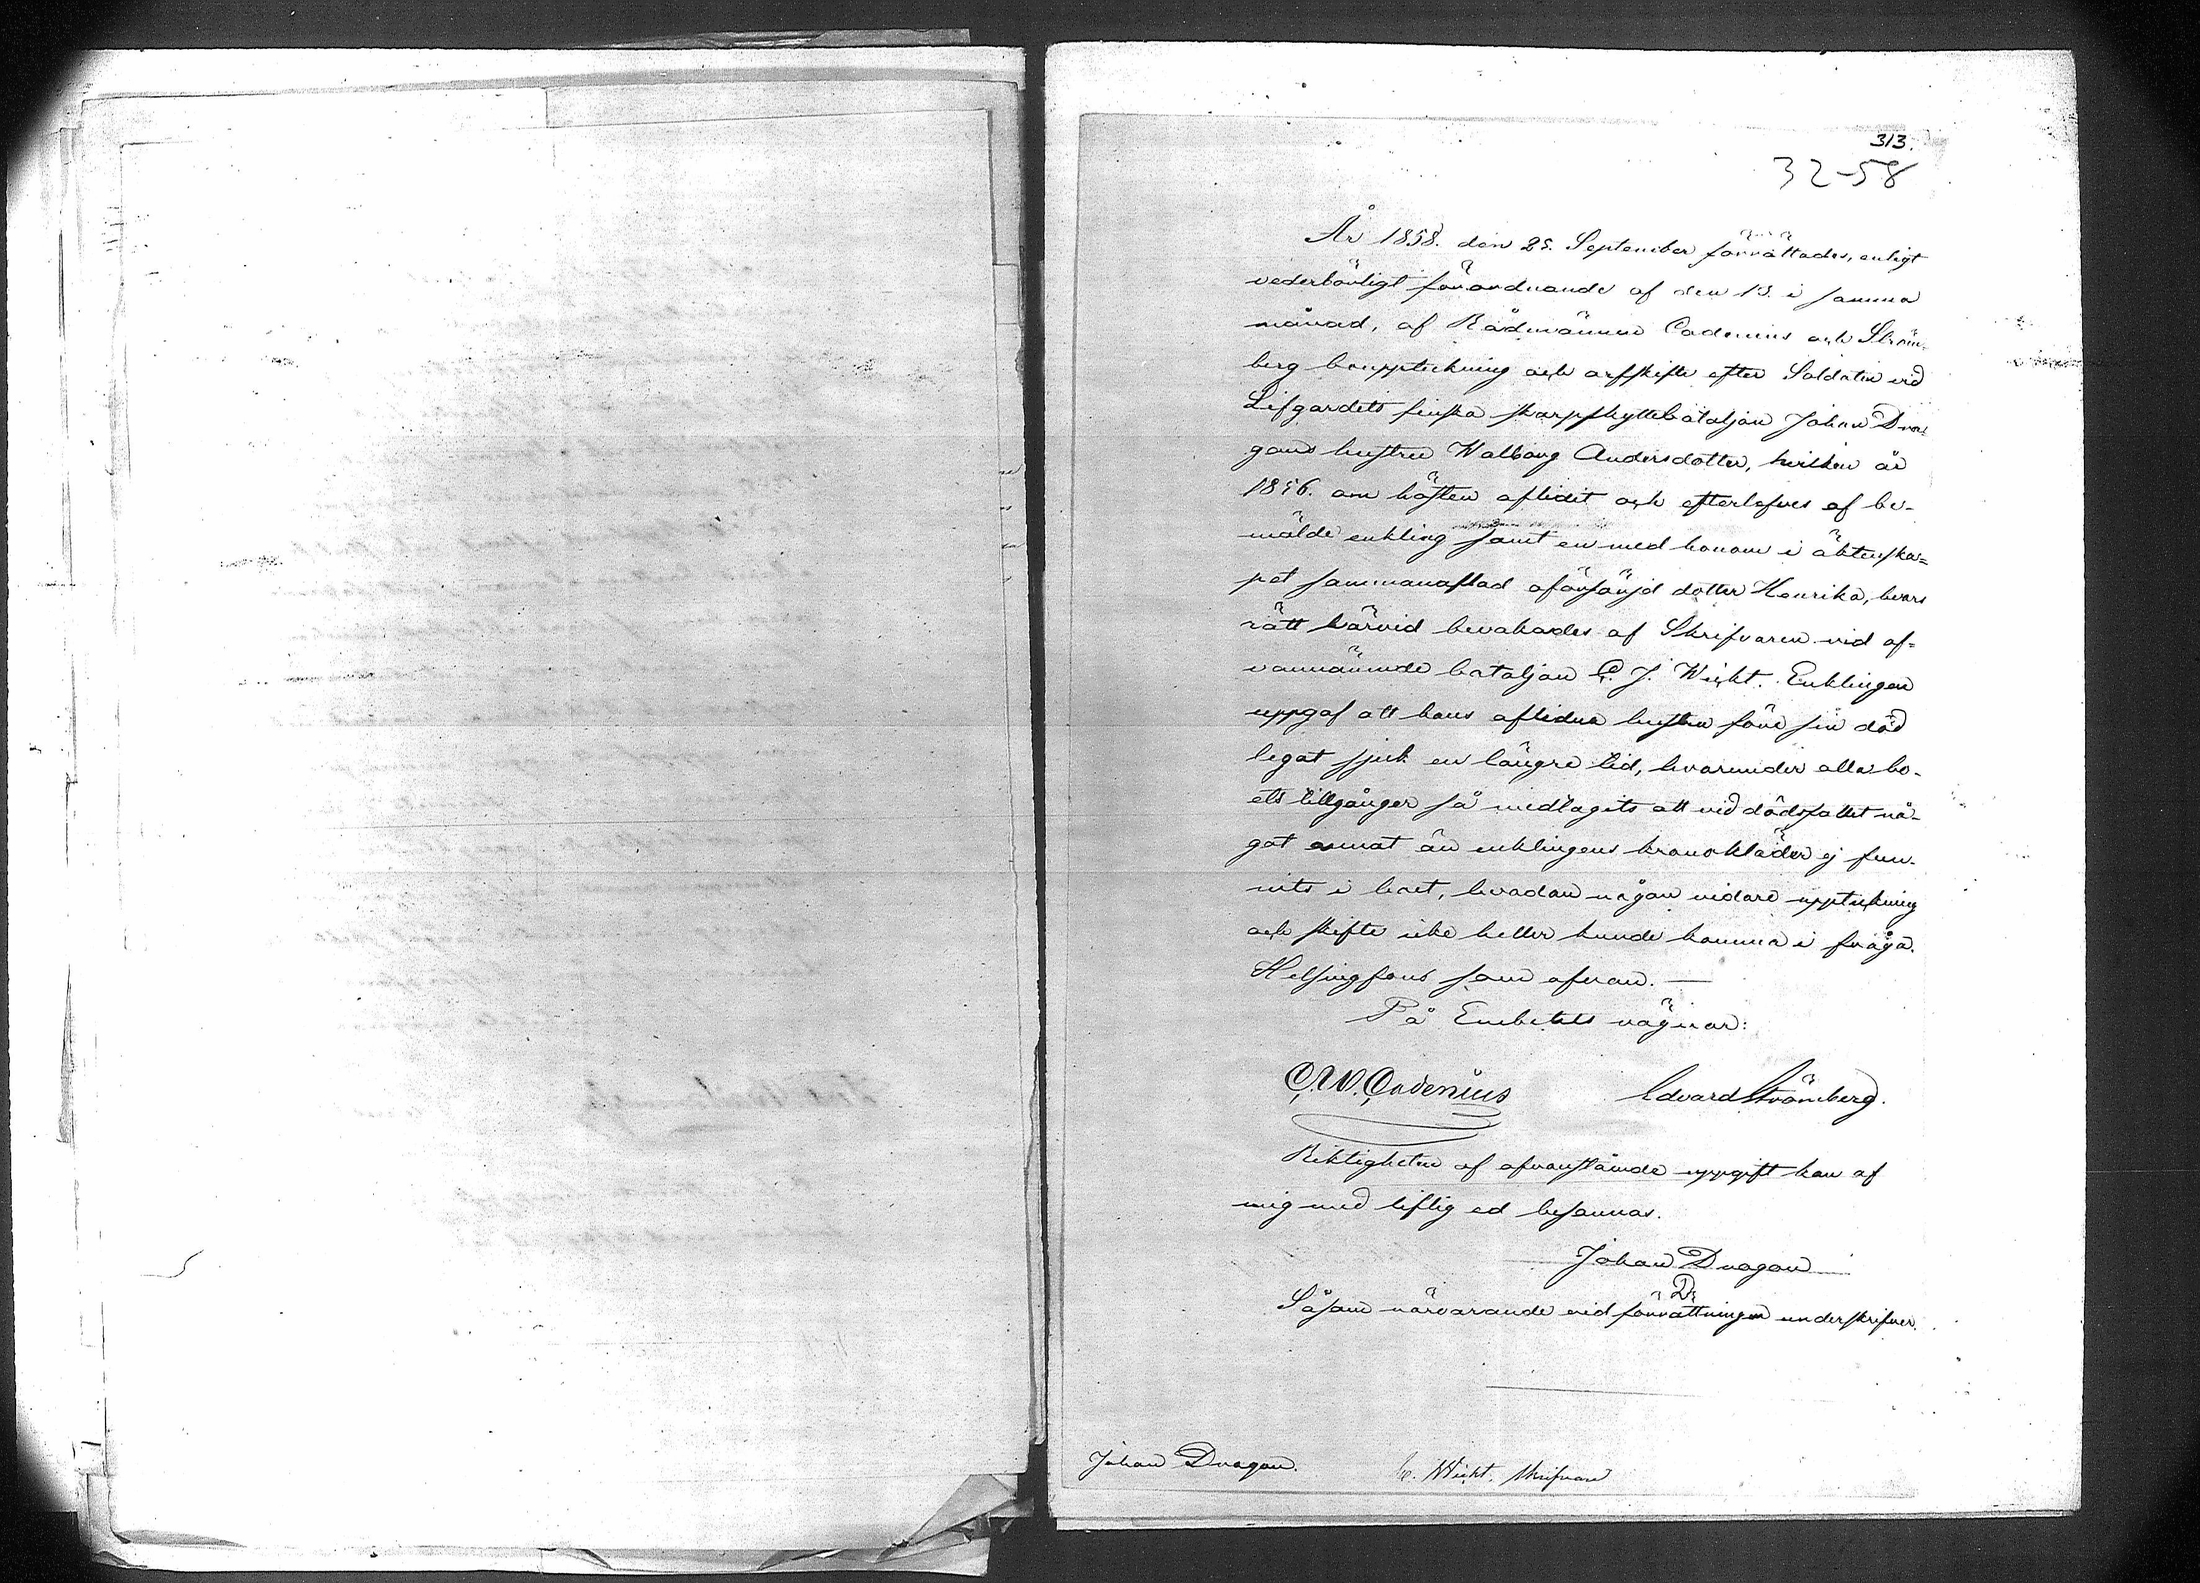 313.
32-58
År 1858. den 25. September förrättades, enligt
vederbörligt förordnande af den 13. i samma
månad, af Rådmännen Cadenius och Ström-
berg bouppteckning och arfskifte efter Soldaten vid
Lifgardets finska skarpskyttebataljon Johan Dra-
gons hustru Walborg Andersdotter, hvilken år
1856. om hösten aflidit och efterlefves af be-
mälde enkling samt en med honom i äktenska=
pet sammanaflad oförsörjd dotter Henrika, hvars
rätt härvid bevakades af Skrifvaren vid of=
vannämnde bataljon C. J. Weckt. Enklingen
uppgaf att hans aflidna hustru före sin död
legat sjuk en längre tid, hvarunder alla bo-
ets tillgångar så medtagits att vid dödsfallet nå-
got annat än enklingens kronokläder ej fun-
nits i boet, hvadan någon vidare uppteckning
och skifte icke heller kunde komma i fråga.
Helsingfors som ofvan. —
På Embetets vägnar:
C. W. Cadenius Edvard Strömberg.
Riktigheten af ofvanstående uppgift kan af
mig med liflig ed besannas.
Johan Dragon
D
Såsom närvarande vid förrättningen underskrifver.
Johan Dragon. C. Weckt. Skrifvare